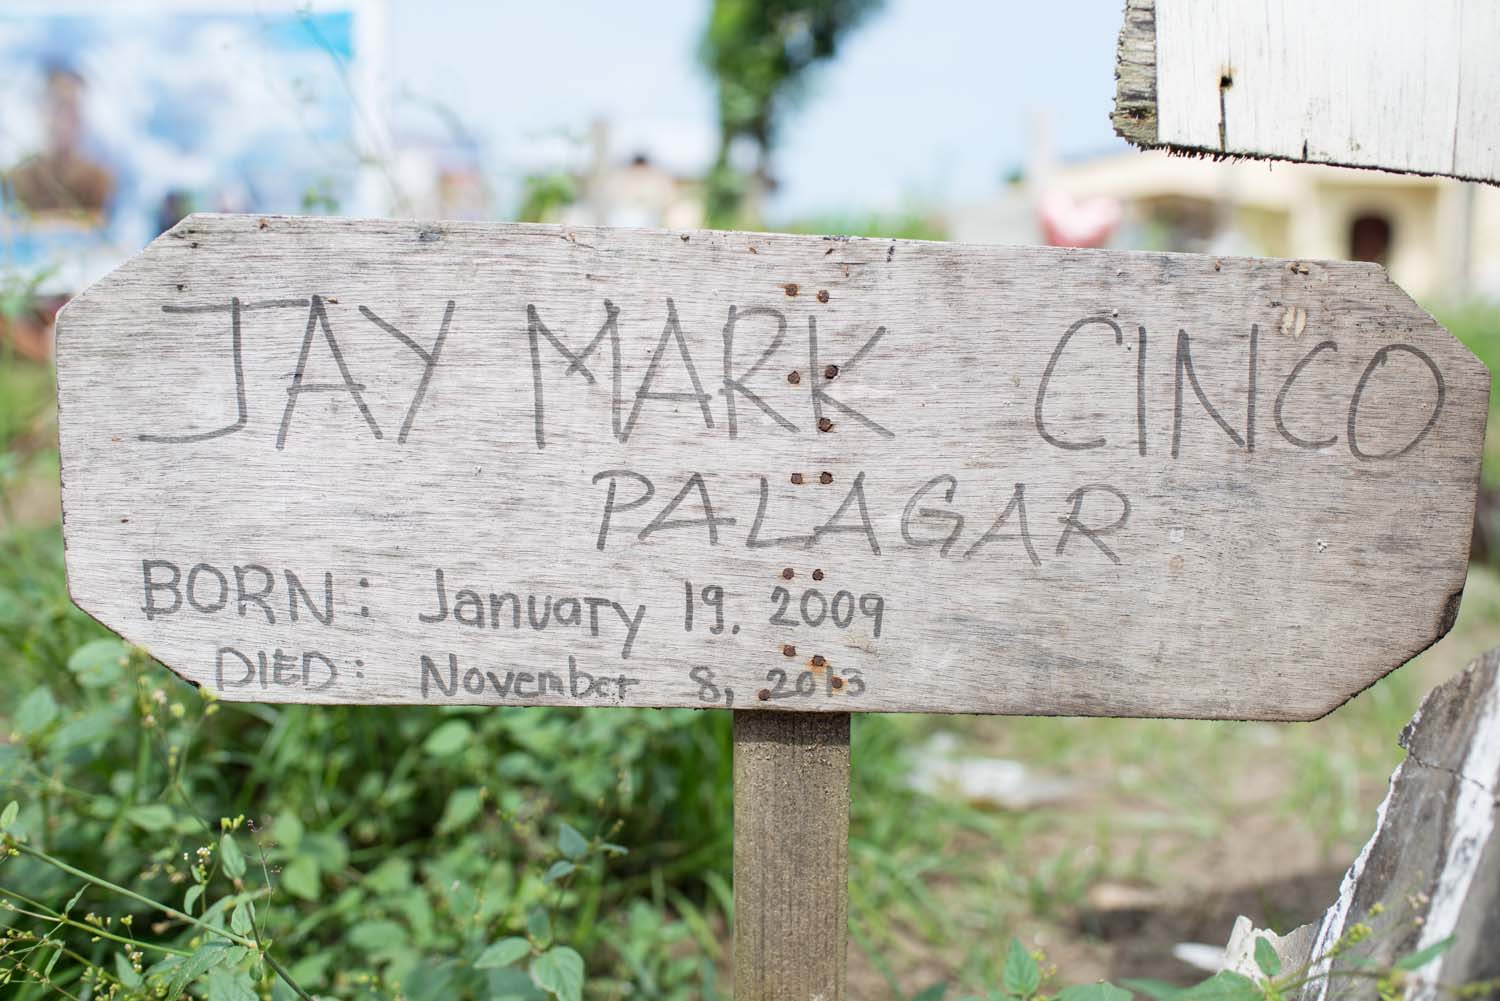 JAY MARK CINCO
PALAGAR
BORN: January 19, 2009
DIED: November 8, 2013